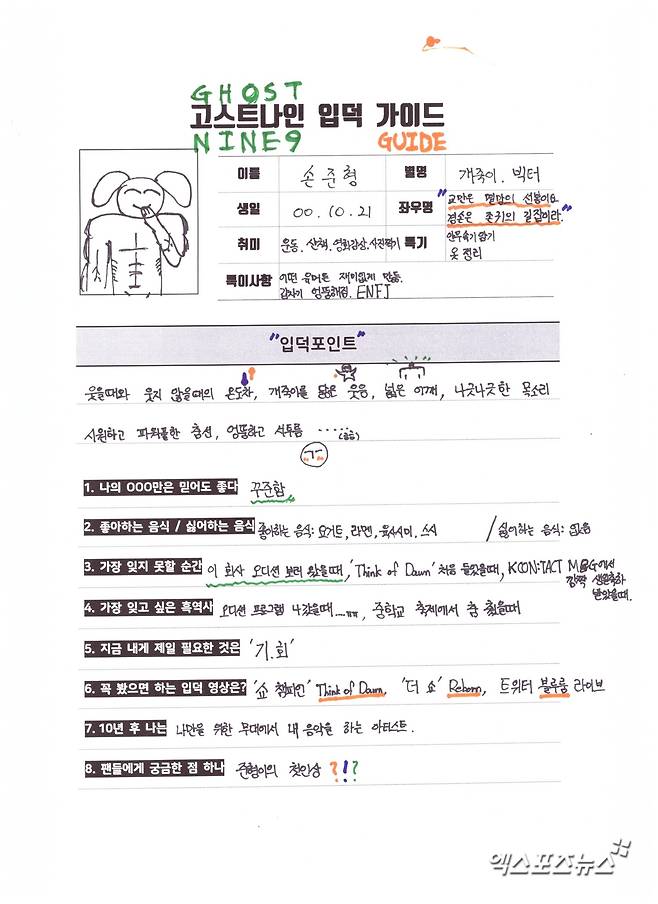 GHOST
고스트나인 입덕 가이드
NINE9 GUIDE
이름 손준형 별명 개죽이. 빅터
생일 00.10.21 좌우명 "교만은 멸망의 선봉이요
겸손은 존귀의 길잡이라."
취미 운동. 산책. 영화감상. 사진찍기 특기 안무숙기 알기
옷 정리
특이사항 어떤 유머든 재미없게 만듦.
갑자기 엉뚱해짐. ENFJ
"입덕포인트"
웃을때와 웃지 않을때의 온도차, 개죽이를 닮은 웃음, 넓은 어깨, 나긋나긋한 목소리
시원하고 파워풀한 춤선, 엉뚱하고 서투름 ......
1. 나의 OOO만은 믿어도 좋다 꾸준함
2. 좋아하는 음식 / 싫어하는 음식 좋아하는 음식: 요거트, 라멘, 육사시미, 스시 / 싫어하는 음식: 없음
3. 가장 잊지 못할 순간 이 회사 오디션 보러 왔을때, 'Think of Dawn' 처음 들었을때, KOON:TACT MBG에서
깜짝 생일축하
받았을때.
4. 가장 잊고 싶은 흑역사 오디션 프로그램 나갔을때...ㅠㅠ, 중학교 축제에서 춤 췄을때
5. 지금 내게 제일 필요한 것은 '기.회'
6. 꼭 봤으면 하는 입덕 영상은? '쇼 챔피언' Think of Dawn, '더 쇼' Reborn, 트위터 블루룸 라이브
7. 10년 후 나는 나만을 위한 무대에서 내 음악을 하는 아티스트.
8. 팬들에게 궁금한 점 하나 준형이의 첫인상 ?!?
엑스포츠뉴스